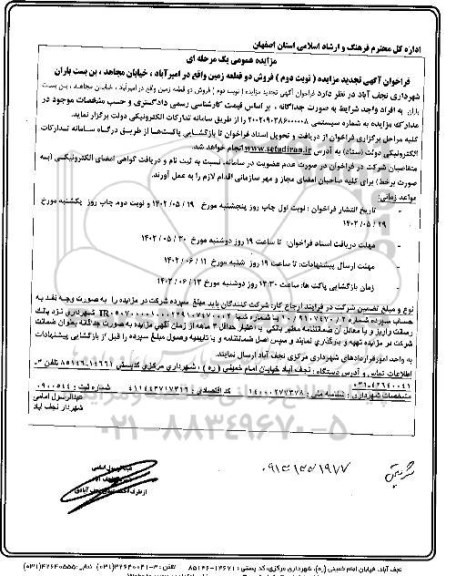 اداره کل محترم فرهنگ و ارشاد اسلامی استان اصفهان
مزایده عمومی یک مرحله ای
فراخوان آگهی تجدید مزایده ( نوبت دوم ) فروش دو قطعه زمین واقع در امیرآباد ، خیابان مجاهد ، بن بست یاران
شهرداری نجف آباد در نظر دارد فراخوان آگهی تجدید مزایده ( نوبت دوم ) فروش دو قطعه زمین واقع در امیرآباد ، خیابان مجاهد ، بن بست
یاران به افراد واجد شرایط به صورت جداگانه ، بر اساس قیمت کارشناسی رسمی دادگستری و حسب مشخصات موجود در
مدارک مزایده به شماره سیستمی را از طریق سامانه تدارکات الکترونیکی دولت برگزار نماید.
کلیه مراحل برگزاری فراخوان از دریافت و تحویل اسناد فراخوان تا بازگشایی پاکت‌ها از طریق درگاه سامانه تدارکات
الکترونیکی دولت (ستاد) به آدرس www.setadiran.ir انجام خواهد شد.
متقاضیان شرکت در فراخوان در صورت عدم عضویت در سامانه، نسبت به ثبت نام و دریافت گواهی امضای الکترونیکی (به
صورت برخط) برای کلیه صاحبان امضای مجاز و مهر سازمانی اقدام لازم را به عمل آورند.
مواعد زمانی:
- تاریخ انتشار فراخوان : نوبت اول چاپ روز پنجشنبه مورخ ۱۹ / ۰۵ / ۱۴۰۲ و نوبت دوم چاپ روز یکشنبه مورخ
۲۹ / ۰۵ / ۱۴۰۲
- مهلت دریافت اسناد فراخوان: تا ساعت ۱۹ روز دوشنبه مورخ ۳۰ / ۰۵ / ۱۴۰۲
- مهلت ارسال پیشنهادات: تا ساعت ۱۹ روز شنبه مورخ ۱۱ / ۰۶ / ۱۴۰۲
- زمان بازگشایی پاکت ها: ساعت ۱۲:۳۰ روز دوشنبه مورخ ۱۳ / ۰۶ / ۱۴۰۲
نوع و مبلغ تضمین شرکت در فرایند ارجاع کار: شرکت کنندگان باید مبلغ سپرده شرکت در مزایده را به صورت وجه نقد به
حساب سپرده شهرداری نزد بانک
رسالت واریز و یا معادل آن ضمانتنامه معتبر بانکی با اعتبار حداقل ۳ ماهه از زمان آگهی مزایده به صورت جداگانه بعنوان ضمانت
شرکت در مزایده تهیه و بارگذاری نمایند و سپس اصل ضمانتنامه و یا تاییدیه وصول مبلغ سپرده را قبل از بازگشایی پیشنهادات
به واحد امور قراردادهای شهرداری مرکزی نجف آباد ارسال نمایند.
اطلاعات تماس و آدرس دستگاه : نجف آباد خیابان امام خمینی ( ره ) ، شهرداری مرکزی کدپستی تلفن
مشخصات شهرداری : شناسه ملی : ۱۴۰۰۰۲۷۷۳۷۸ کد اقتصادی : ۴۱۱۴۴۳۷۱۷۳۱۹ شماره ثبت :
عبدالرسول امامی
شهردار نجف آباد
۰۲۱-۸۸۳۴۹۶۷۰-۵
عبدالرسول امامی
نجف آباد، خیابان امام خمینی (ره)، شهرداری مرکزی، کد پستی: ۱۴۶۷۱-۸۵۱۴۶ تلفن: ۳-۴۲۶۴۰۰۴۱ (۰۳۱) نمابر: ۴۲۶۴۰۵۵۵ (۰۳۱)